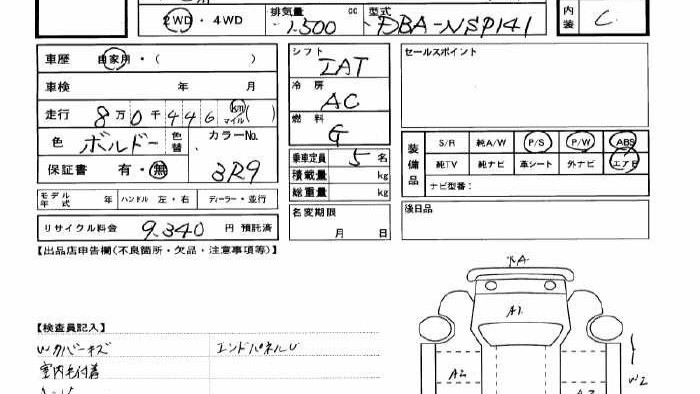 2WD・4WD 排気量 1.500 cc 型式 DBA-NSP141 内装 C
車歴 自家用・( )
シフト IAT
セールスポイント
車検 年 月
冷房 AC
走行 8万0千446 km マイル( )
燃料 G
色 ボルドー 色替 カラーNo. 3R9
装備品 S/R 純A/W P/S P/W ABS
乗車定員 5名
純TV 純ナビ 革シート 外ナビ エアB
保証書 有・無
積載量 kg
ナビ型番:
総重量 kg
モデル年式 年 ハンドル 左・右 ディーラー・並行
名変期限 月 日
後日品
リサイクル料金 9.340 円 預託済
【出品店申告欄(不良箇所・欠品・注意事項等)】
A1
【検査員記入】
Wカバーキズ エンドパネルU
室内毛付着
A2 W2